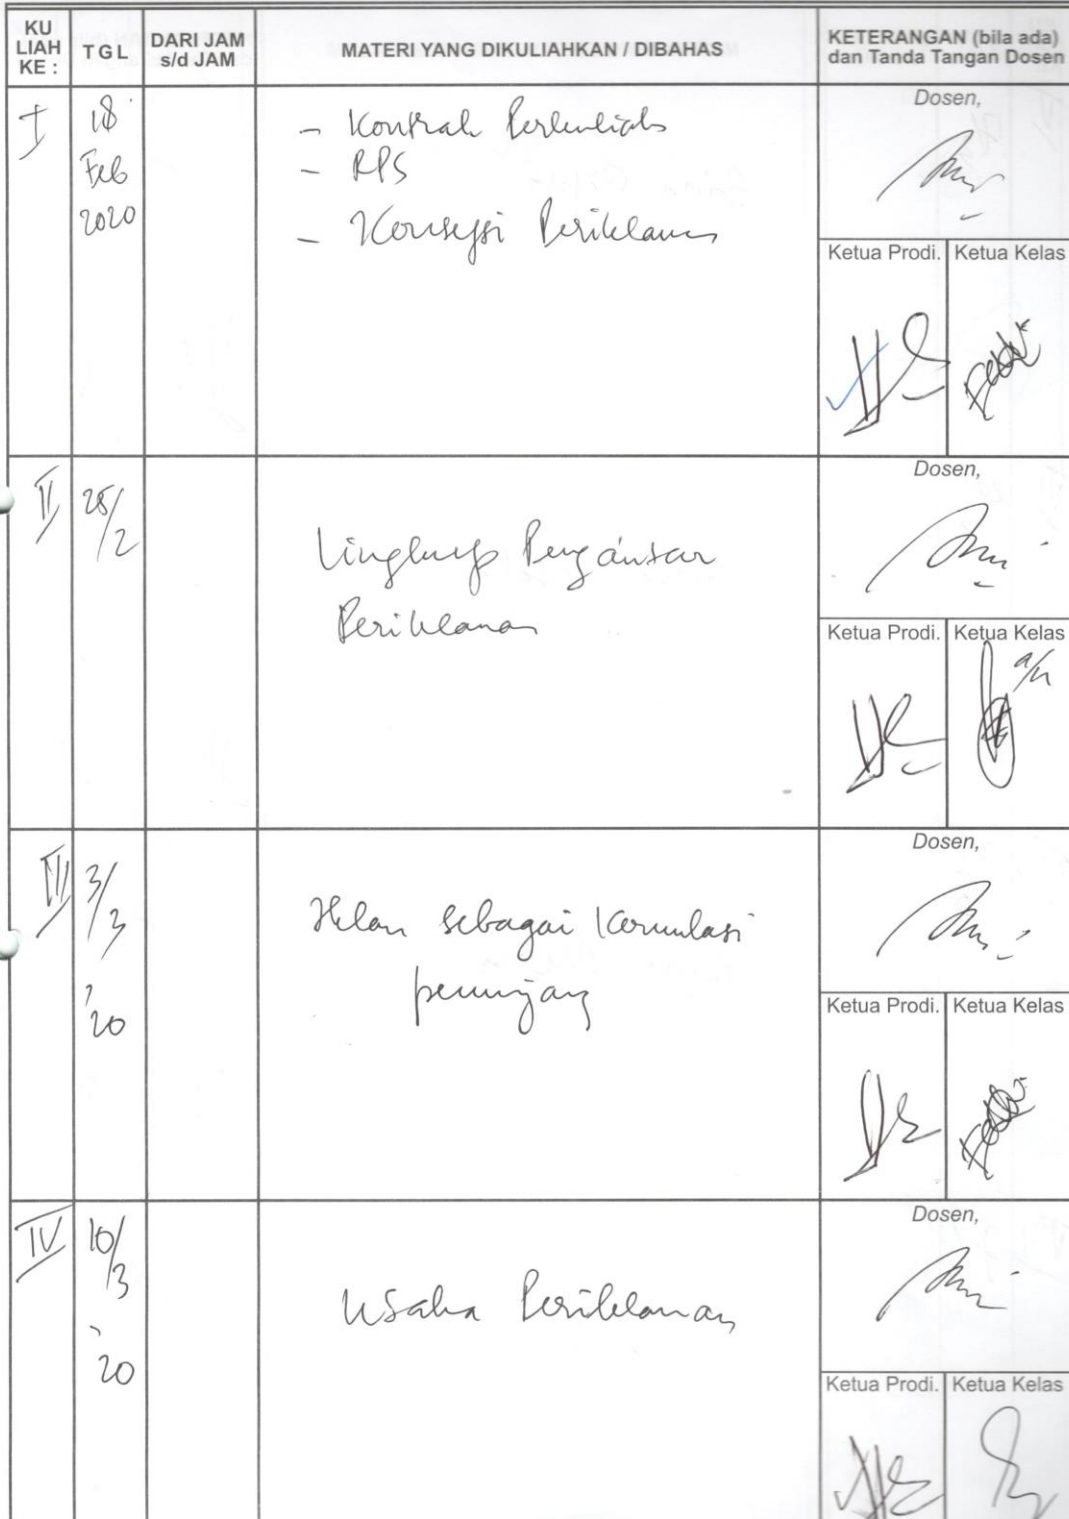 KU LIAH KE :
TGL
DARI JAM s/d JAM
MATERI YANG DIKULIAHKAN / DIBAHAS
KETERANGAN (bila ada) dan Tanda Tangan Dosen
I
18 Feb 2020
- Kontrak Perkuliahan
- RPS
- Konsepsi Periklanan
Dosen,
Ketua Prodi. Ketua Kelas
II
25/2
Lingkup Pengantar
Periklanan
Dosen,
Ketua Prodi. Ketua Kelas
a/n
III
3/3 '20
Iklan sebagai Komunikasi
penunjang
Dosen,
Ketua Prodi. Ketua Kelas
IV
10/3 '20
Usaha Periklanan
Dosen,
Ketua Prodi. Ketua Kelas